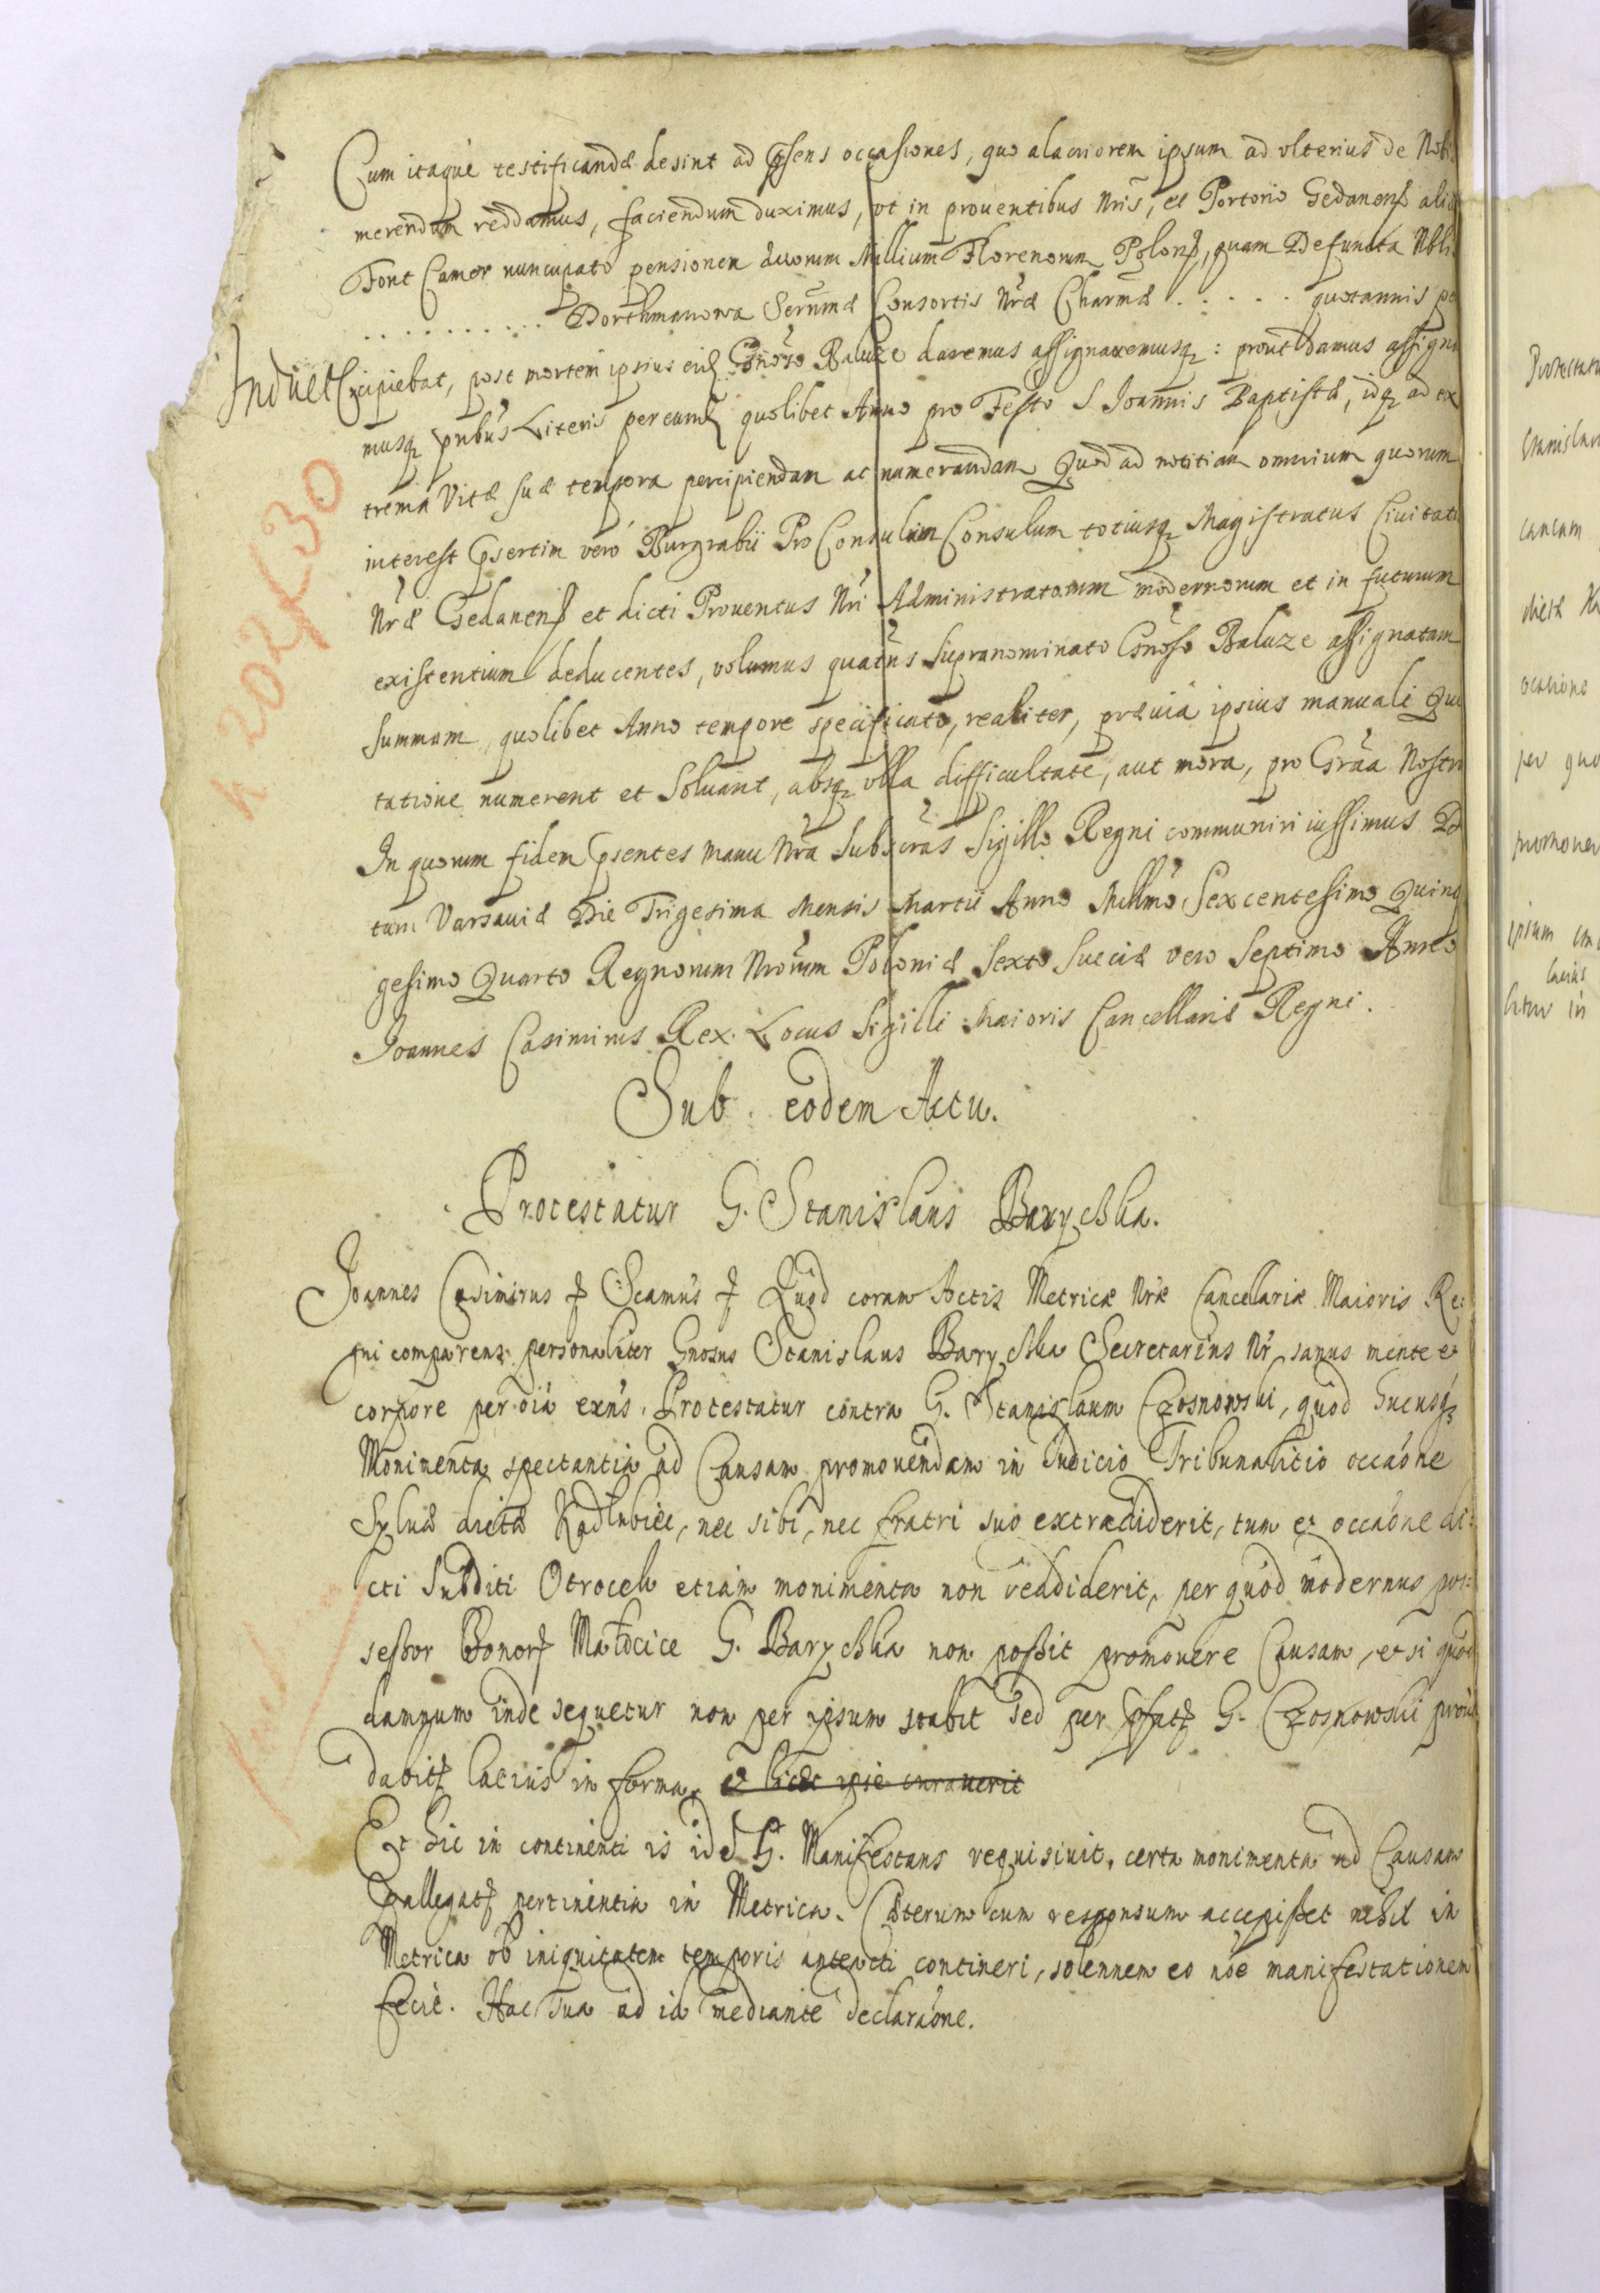 Cum itaque testificandæ desint ad psens occasiones, quo alacriorem ipsum ad vlterius de Nobis
merendum reddamus, faciendum duximus, vt in prouentibus Nris, et Portorio Gedanens alias
Font Camor nuncupato pensionem duorum Millium Florenorum Polon, quam Defuncta Nblis
. . . . . . . . . . . Dorthmanowa Serenmæ Consortis Nræ Charmæ . . . . . quotannis per
Induct
cipiebat, post mortem ipsius eid Gnoso Baluze daremus assignaremusq: prout damus assigna
musq pntbus Literis per eund quolibet Anno pro Festo S Joannis Baptistæ, idq ad ex
trema Vitæ suæ tempora percipiendam ac numerandam Quod ad notitiam omnium quorum
interest psertim vero Burgrabii Pro Consulum Consulum totiusq Magistratus Ciuitatis
Nræ Gedanens et dicti Prouentus Nri Administratorum modernorum et in futurum
existentium deducentes, volumus quatus Supranominato Gnoso Baluze assignatam
summam quolibet Anno tempore specificato, realiter, præuia ipsius manuali Qui
tatione numerent et Soluant, absq vlla difficultate, aut mora, pro Graa Nostra
In quorum fidem psentes Manu Nra Subscras Sigillo Regni communiri iussimus Da
tum Varsauiæ Die Trigesima Mensis Martii Anno Millmo Sexcentesimo Quinqa
gesimo Quarto Regnorum Nrorum Poloniæ Sexto Sueciæ vero Septimo Anno
Joannes Casimirus Rex. Locus Sigilli Maioris Cancellariæ Regni.
h 202 f 30
Sub eodem Actu.
Protestatur G. Stanislaus Barychka.
Joannes Casimirus & Scamus & Quod coram Actis Metricæ Nræ Cancelariæ Maioris Re:
gni comparens personaliter Gnosus Stanislaus Barychka Secretarius Nr, sanus mente et
corpore per oia exns. Protestatur contra G. Stanislaum Czosnowski, quod hucusq
Monimenta spectantia ad Causam promouendam in Iudicio Tribunalitio occaóne
Syluæ dictæ Kadłubiec, nec sibi, nec fratri suo extradiderit, tum et occaóne di:
cti Subditi Otroceh etiam monimenta non reddiderit, per quod modernus pos:
sessor Bonor Małocice G. Barychka non possit promouere Causam, et si quod
damnum inde sequetur non per ipsum stabit sed per pfat G. Czosnowski prout
dabit latius in forma, et licet ipse curauerit
Et hic in continenti is idē G. Manifestans requisiuit, certa monimenta ad Causam
pallegat pertinentia in Metrica. Cæterum cum responsum accepisset nihil in
Metrica ob iniquitatem temporis anteacti contineri, solennem eo nóe manifestationem
fecit. Hac sua ad id mediante declaraóne.